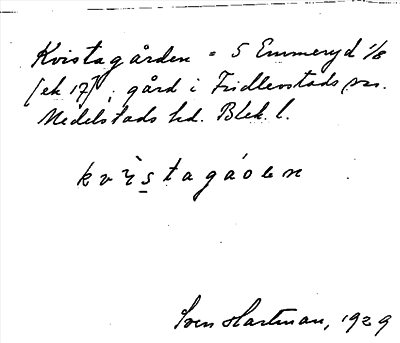 Kvistagården = S Emmeryd 1/8
[ek 17], gård i Fridlevstads sn.
Medelstads hd. Blek. l.
kvìstagáoen
Sven Hartman, 1929